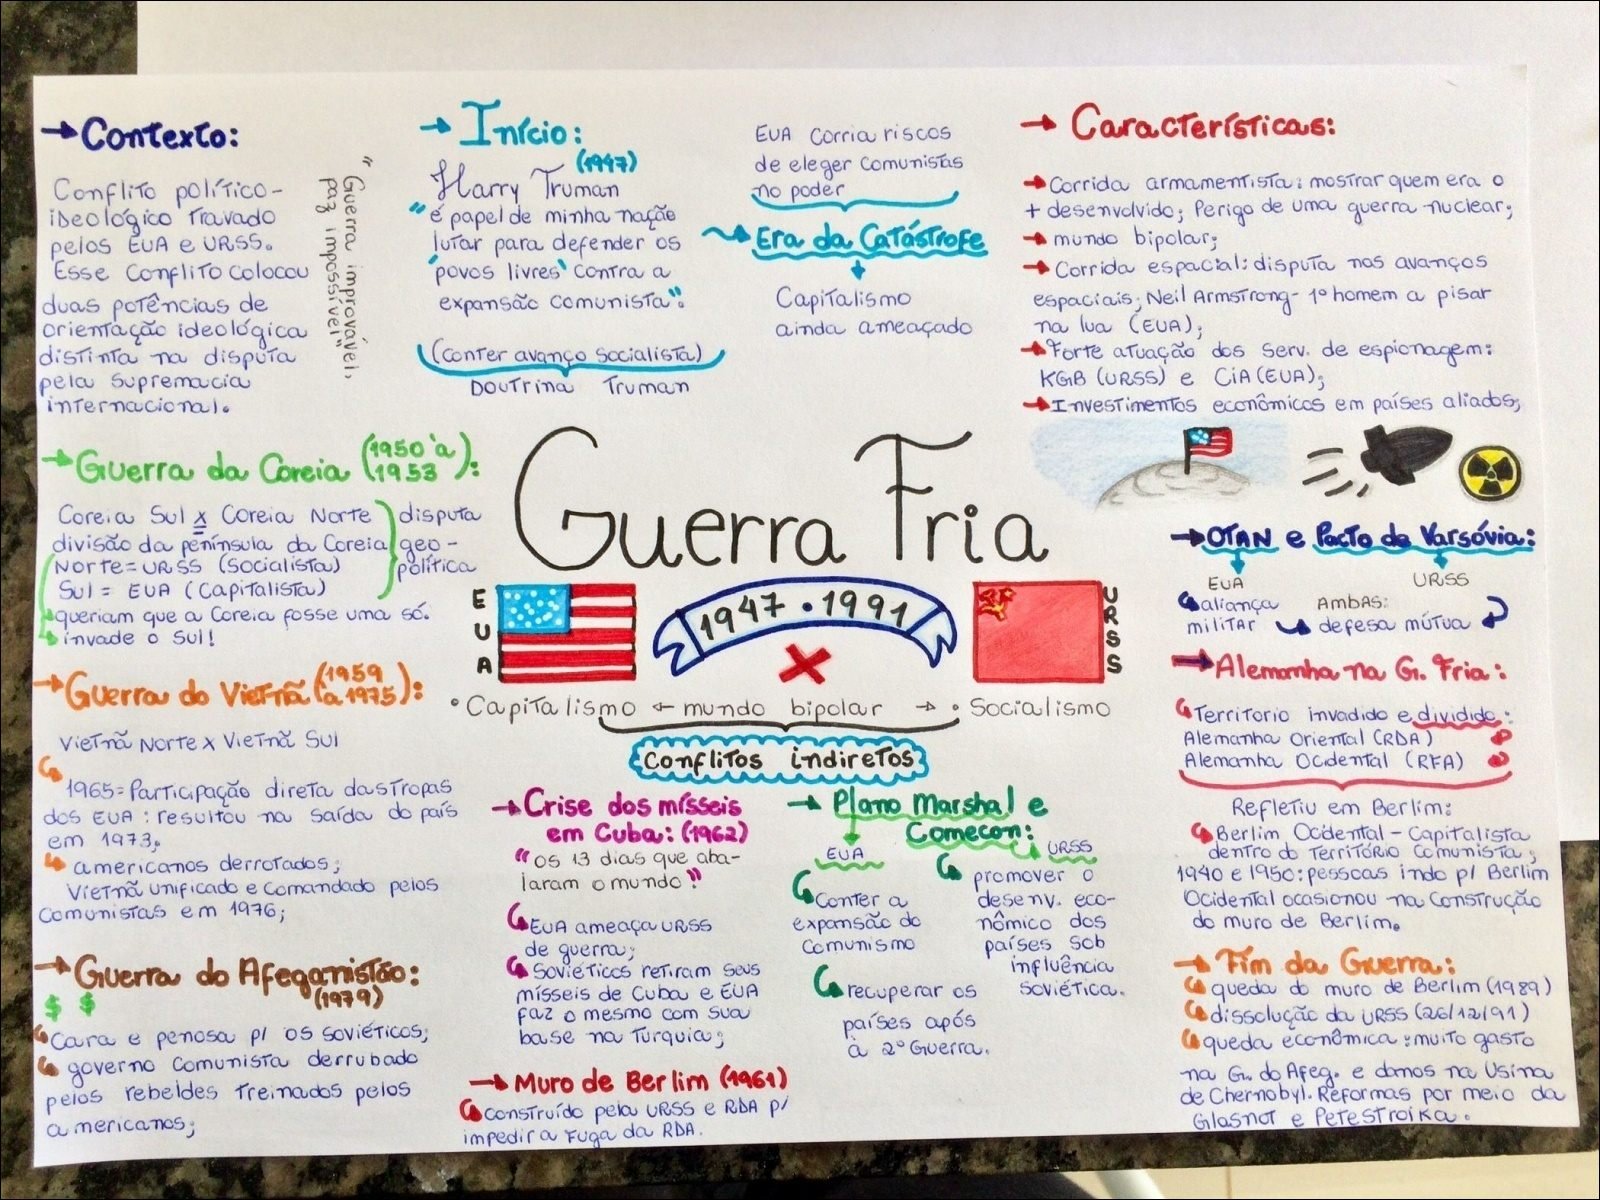 →Contexto:
Conflito político-
ideológico travado
pelos EUA e URSS.
Esse conflito colocou
duas potências de
orientação ideológica
distinta na disputa
pela supremacia
internacional.
"Guerra improvável,
paz impossível"
→Início:
(1947)
Harry Truman
"é papel de minha nação
lutar para defender os
'povos livres' contra a
expansão comunista".
(conter avanço socialista)
Doutrina Truman
EUA corria riscos
de eleger comunistas
no poder
Era da Catástrofe
Capitalismo
ainda ameaçado
→ Características:
→Corrida armamentista: mostrar quem era o
+ desenvolvido; Perigo de uma guerra nuclear;
→ mundo bipolar;
→ Corrida espacial: disputa nos avanços
espaciais; Neil Armstrong- 1º homem a pisar
na lua (EUA);
→Forte atuação dos serv. de espionagem:
KGB (URSS) e CiA (EUA);
→Investimentos econômicos em países aliados;
→Guerra da Coreia (1950 à
1953):
Coreia Sul x Coreia Norte
divisão da península da Coreia
Norte=URSS (Socialista)
Sul = EUA (Capitalista)
disputa
geo-
política
queriam que a Coreia fosse uma só.
invade o Sul!
→Guerra do Vietnã (1959
a 1975):
Vietnã Norte x Vietnã Sul
1965=Participação direta das tropas
dos EUA: resultou na saída do país
em 1973;
americanos derrotados;
Vietnã unificado e comandado pelos
comunistas em 1976;
→Guerra do Afeganistão:
(1979)
$ $
Cara e penosa p/ os soviéticos;
governo comunista derrubado
pelos rebeldes treinados pelos
americanos;
Guerra Fria
EUA
1947 • 1991
URSS
• Capitalismo ← mundo bipolar → • Socialismo
Conflitos indiretos
→Crise dos mísseis
em Cuba: (1962)
"os 13 dias que aba-
laram o mundo."
EUA ameaça URSS
de guerra;
Soviéticos retiram seus
mísseis de Cuba e EUA
faz o mesmo com sua
base na Turquia;
→ Muro de Berlim (1961)
construído pela URSS e RDA p/
impedir a fuga da RDA.
→ Plano Marshal e
Comecon:
EUA
URSS
Conter a
expansão do
Comunismo
recuperar os
países após
à 2º Guerra.
promover o
desenv. eco-
nômico dos
países sob
influência
soviética.
→OTAN e Pacto de Varsóvia:
EUA
URSS
aliança
militar
Ambas:
defesa mútua
→Alemanha na G. Fria:
Territorio invadido e dividido:
Alemanha Oriental (RDA)
Alemanha Ocidental (RFA)
Refletiu em Berlim:
Berlim Ocidental - Capitalista
dentro do território comunista;
1940 e 1950: pessoas indo p/ Berlim
Ocidental ocasionou na construção
do muro de Berlim.
→ Fim da Guerra:
queda do muro de Berlim (1989)
dissolução da URSS (26/12/91)
queda econômica: muito gasto
na G. do Afeg. e danos na Usina
de Chernobyl. Reformas por meio da
Glasnot e Perestroika.